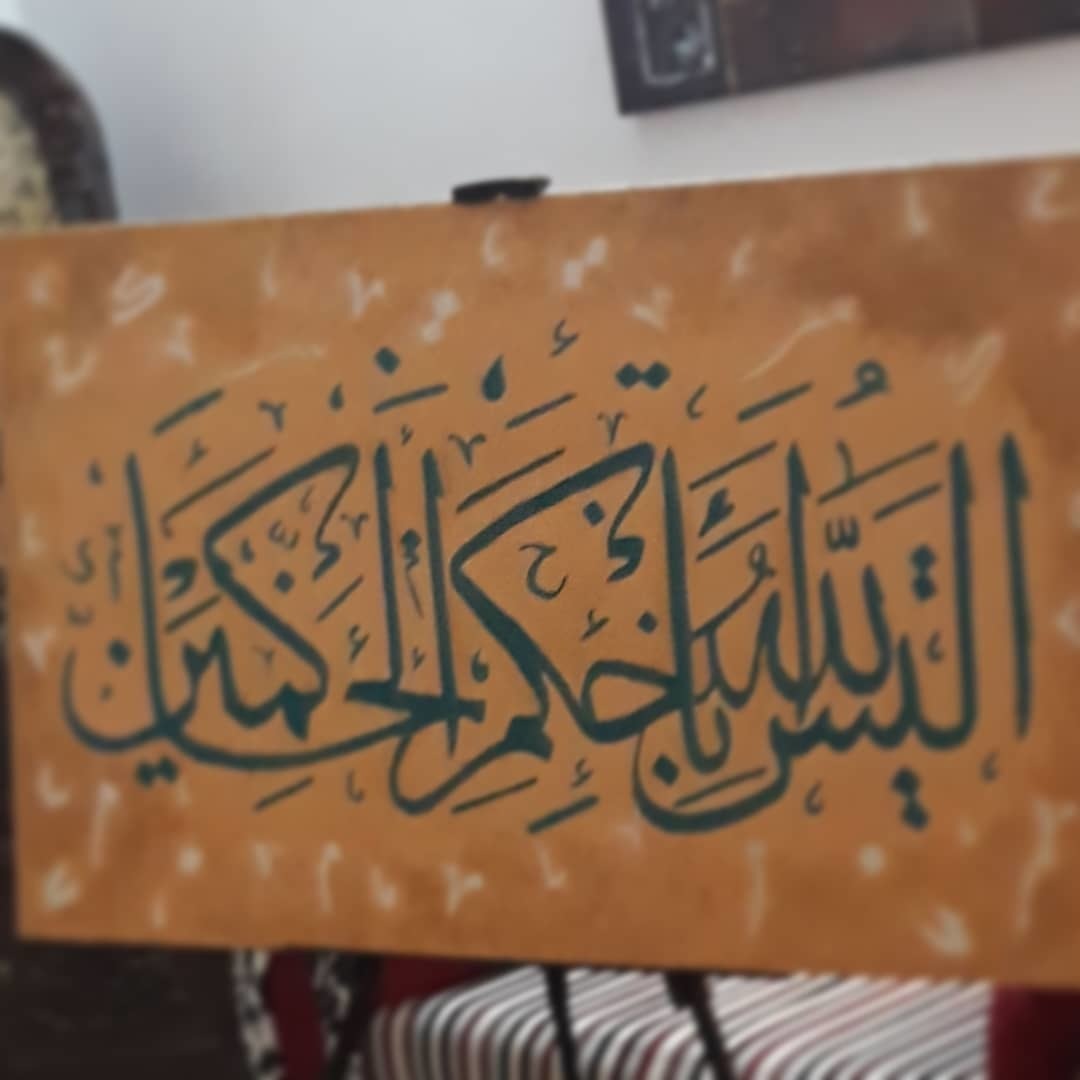 أَلَيْسَ اللَّهُ بِأَحْكَمِ الْحَاكِمِينَ